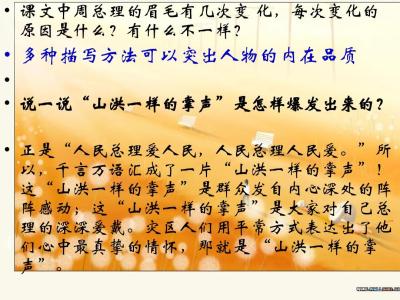 课文中周总理的眉毛有几次变 化，每次变化的
原因是什么？有什么不一样？
多种描写方法可以突出人物的内在品质
说一说“山洪一样的掌声”是怎样爆发出来的？
正是“人民总理爱人民，人民总理人民爱。”所
以，千言万语汇成了一片“山洪一样的掌声”！
这“山洪一样的掌声”是群众发自内心深处的阵
阵感动；这“山洪一样的掌声”是大家对自己总
理的深深爱戴。灾区人们用平常方式表达出了他
们心中最真挚的情怀，那就是“山洪一样的掌
声”。